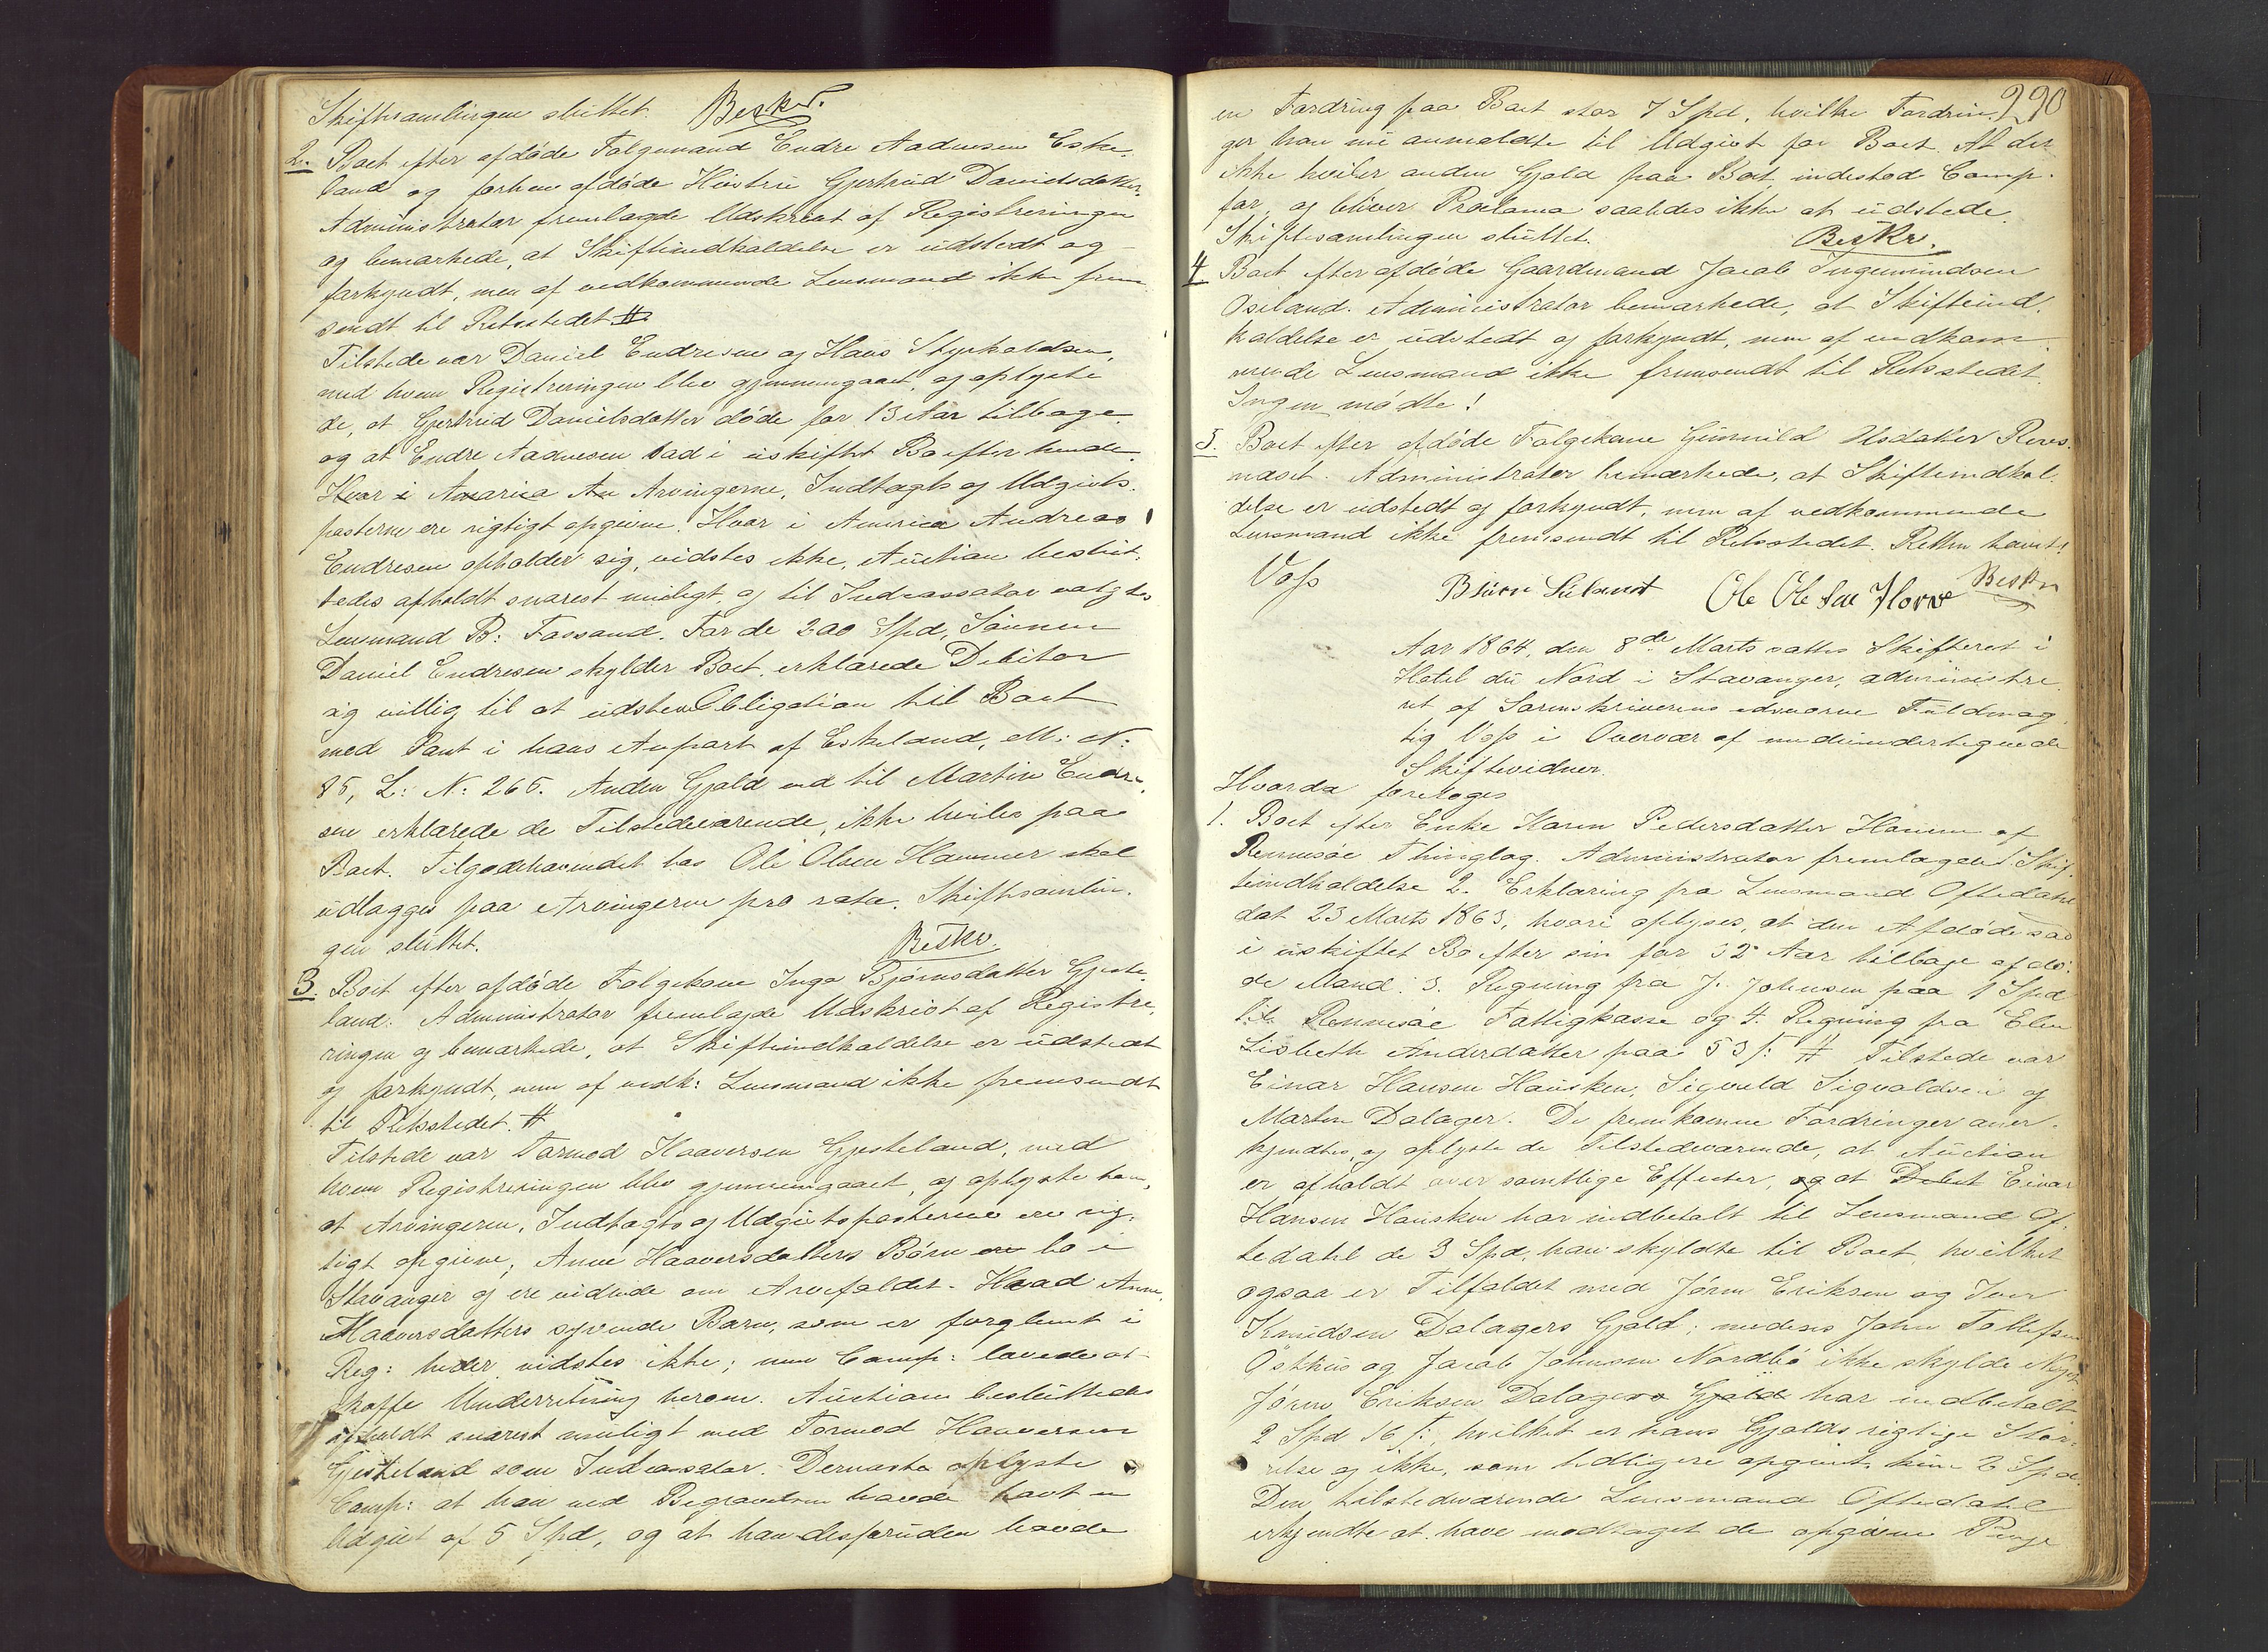 Skiftesamlingen sluttet. Beskr.
2. Boet efter afdøde Følgemand Endre Aadnesen Eske-
land og forhen afdøde Hustru Gjertrud Danielsdatter.
Administrator fremlagde Udskrivt af Registreringen
og bemærkede, at Skifteindkaldelse er udstedt og
forkyndt, men af vedkommende Lensmand ikke frem
sendt til Retsstedet. #
Tilstede var Daniel Endresen og Hans Styrkoldsen,
med hvem Registreringen blev gjennemgaaet, og oplyste
de, at Gjertrud Danielsdatter døde for 13 Aar tilbage,
og at Endre Aadnesen sad i uskiftet Bo efter hende.
Hvor i America An Arvingerne, Indtægts og Udgivts-
posterne ere rigtigt opgivne. Hvor i America Andreas
Endresen opholder sig, vidstes ikke. Auction beslut-
tedes afholdt snarest muligt, og til Indcassator valgtes
Lensmand B: Fossand. For de 200 Spd, Sønnen
Daniel Endresen skylder Boet, erklærede Debitor
sig villig til at udstede Obligation til Boet
med Pant i hans Anpart af Eskeland, M: N:
85, L: N: 265. Anden Gjæld end til Martin Endre-
sen erklærede de Tilstedeværende, ikke hviler paa
Boet. Tilgodehavendet hos Ole Olsen Hammer skal
udlægges paa Arvingerne pro rata. Skiftesamlin-
gen sluttet. Beskr.
3. Boet efter afdøde Følgekone Inga Bjørnsdatter Gjeste-
land. Administrator fremlagde Udskrivt af Registre-
ringen og bemærkede, at Skifteindkaldelse er udstedt
og forkyndt, men af vedk: Lensmand ikke fremsendt
til Retsstedet. #
Tilstede var Tormod Haaversen Gjesteland, med
hvem Registreringen blev gjennemgaaet, og oplyste han,
at Arvingerne, Indtægts og Udgivtsposterne ere rig-
tigt opgivne; Anne Haaversdatters Børn ere bo i
Stavanger og ere vidende om Arvefaldet. Hvad Anne
Haaversdatters syvende Barn, som er forglemt i
Reg: heder vidstes ikke; men Comp: lovede at
skaffe Underretning herom. Auction besluttedes
afholdt snarest muligt med Tormod Haaversen
Gjesteland som Indcassator. Dernæst oplyste
Comp: at han ved Begravelsen havde havt en
Udgivt af 5 Spd, og at han desforuden havde
290
en Fordring paa Boet stor 7 Spd, hvilke Fordrin-
ger han nu anmeldte til Udgivt for Boet. At der
ikke hviler anden Gjæld paa Boet, indestod Comp.
for, og bliver Proclama saaledes ikke at udstede.
Skiftesamlingen sluttet. Beskr.
4 Boet efter afdøde Gaardmand Jacob Ingemundsen
Osiland. Administrator bemærkede, at Skifteind-
kaldelse er udstedt og forkyndt, men af vedkom-
mende Lensmand ikke fremsendt til Retsstedet.
Ingen mødte!
5. Boet efter afdøde Følgekone Gunnild Asdatter Reves-
næset. Administrator bemærkede, at Skifteindkal-
delse er udstedt og forkyndt, men af vedkommende
Lensmand ikke fremsendt til Retsstedet. Retten hævet!
Voss Ole Ole Sen Beskr
Aar 1864, den 8de Marts sattes Skifteret i
Hotel du Nord i Stavanger, administre-
ret af Sorenskriverens edsvorne Fuldmæg-
tig Voss i Overvær af medundertegnede
Skiftevidner.
Hvorda foretoges
1. Boet efter Enke Karen Pedersdatter af
Rennesøe Thinglag. Administrator fremlagde 1 Skif-
teindkaldelse 2. Erklæring fra Lensmand Oftedahl
dat 23 Marts 1863, hvori oplyses, at den Afdøde sad
i uskiftet Bo efter sin for 32 Aar tilbage afdø-
de Mand. 3. Regning fra J. Johnsen paa 1 Spd
til Rennesøe Fattigkasse og 4. Regning fra Elen
Lisbeth Andersdatter paa 53 ſ: # Tilstede var
Einar Hansen Hausken, Sigvald Sigvaldsen og
Morten Dalager. De fremkomne Fordringer aner-
kjendtes, og oplyste de Tilstedeværende, at Auction
er afholdt over samtlige Effecter, og at Debet Einar
Hansen Hausken har indbetalt til Lensmand Of-
tedahl de 3 Spd, han skyldte til Boet, hvilket
ogsaa er Tilfældet med Jøren Eriksen og Iver
Knudsen Dalagers Gjæld; medens John Tollefsen
Østhus og Jacob Johnsen Nordbø ikke skylde Noget
Jøren Eriksen Dalagers Gjæld har indbetalt
2 Spd 16 ſ:, hvilket er hans Gjælds rigtige Stør-
relse og ikke, som tidligere opgivet, kun 2 Spd.
Den tilstedeværende Lensmand Oftedahl
erkjendte at have modtaget de opgivne Penge